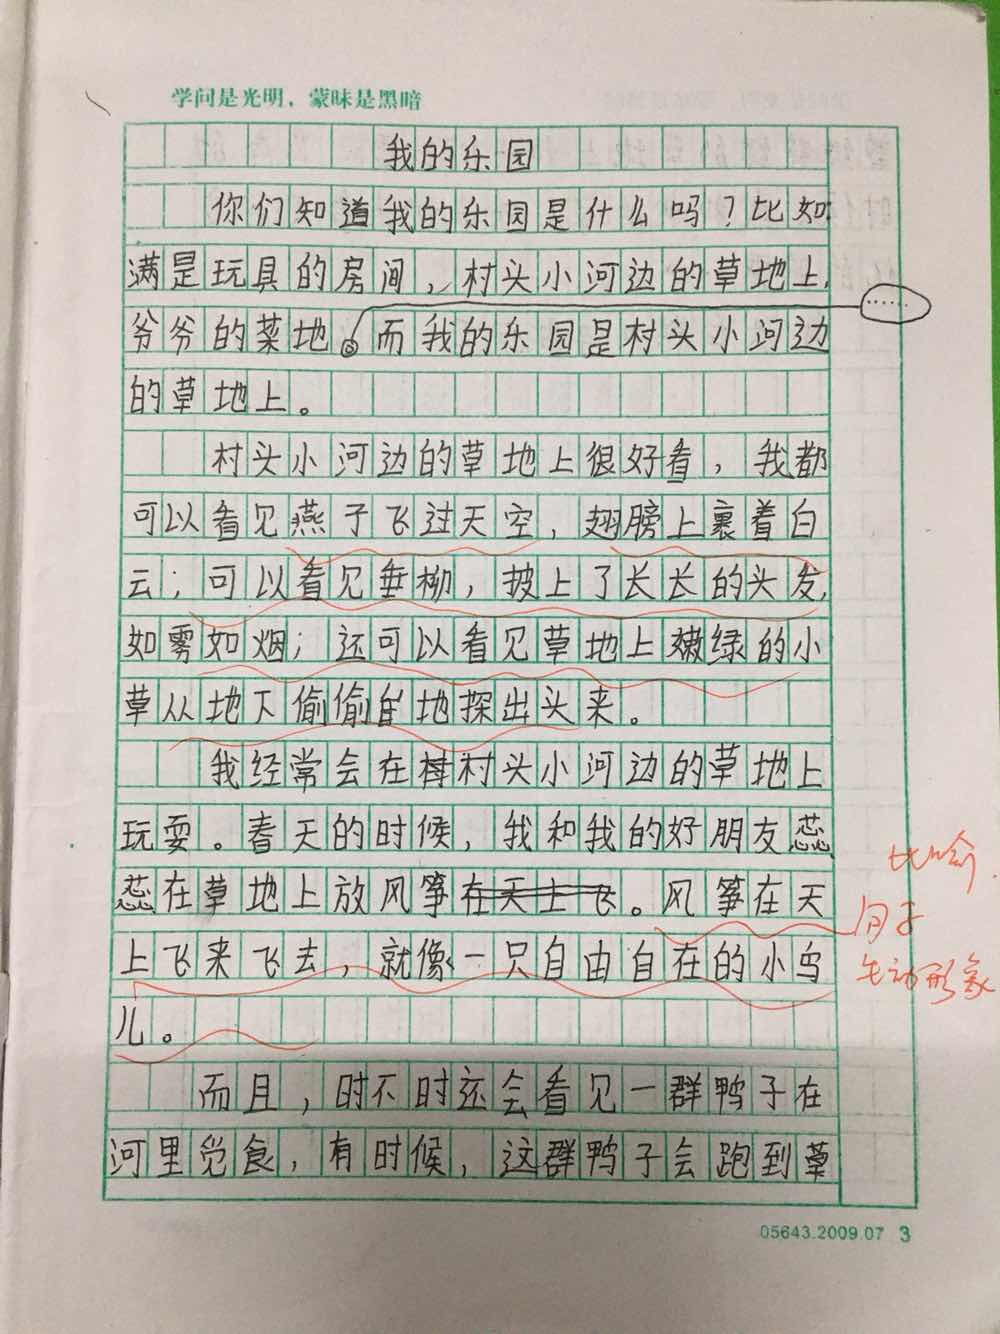 学问是光明，蒙昧是黑暗
我的乐园
你们知道我的乐园是什么吗？比如
满是玩具的房间，村头小河边的草地上，
爷爷的菜地……。而我的乐园是村头小河边
的草地上。
村头小河边的草地上很好看，我都
可以看见燕子飞过天空，翅膀上裹着白
云；可以看见垂柳，披上了长长的头发，
如雾如烟；还可以看见草地上嫩绿的小
草从地下偷偷的地探出头来。
我经常会在村村头小河边的草地上
玩耍。春天的时候，我和我的好朋友蕊
蕊在草地上放风筝在天上飞。风筝在天
上飞来飞去，就像一只自由自在的小鸟
儿。
比喻
句子
生动形象
而且，时不时还会看见一群鸭子在
河里觅食，有时候，这群鸭子会跑到草
05643.2009.07 3